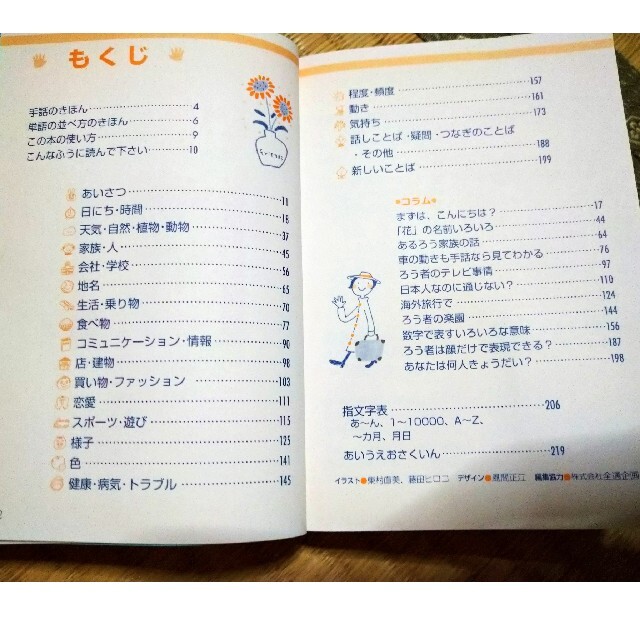 もくじ
手話のきほん 4
単語の並べ方のきほん 6
この本の使い方 9
こんなふうに読んで下さい 10
あいさつ 11
日にち・時間 18
天気・自然・植物・動物 37
家族・人 45
会社・学校 56
地名 65
生活・乗り物 70
食べ物 77
コミュニケーション・情報 90
店・建物 98
買い物・ファッション 103
恋愛 111
スポーツ・遊び 115
様子 125
色 141
健康・病気・トラブル 145
2
程度・頻度 157
動き 161
気持ち 173
話しことば・疑問・つなぎのことば
・その他 188
新しいことば 199
●コラム●
まずは、こんにちは? 17
「花」の名前いろいろ 44
あるろう家族の話 64
車の動きも手話なら見てわかる 76
ろう者のテレビ事情 97
日本人なのに通じない? 110
海外旅行で 124
ろう者の楽園 144
数字で表すいろいろな意味 156
ろう者は顔だけで表現できる? 187
あなたは何人きょうだい? 198
指文字表 206
あ〜ん、1〜10000、A〜Z、
〜カ月、月日
あいうえおさくいん 219
イラスト●東村直美、藤田ヒロコ デザイン●風間正江 編集協力●株式会社全通企画